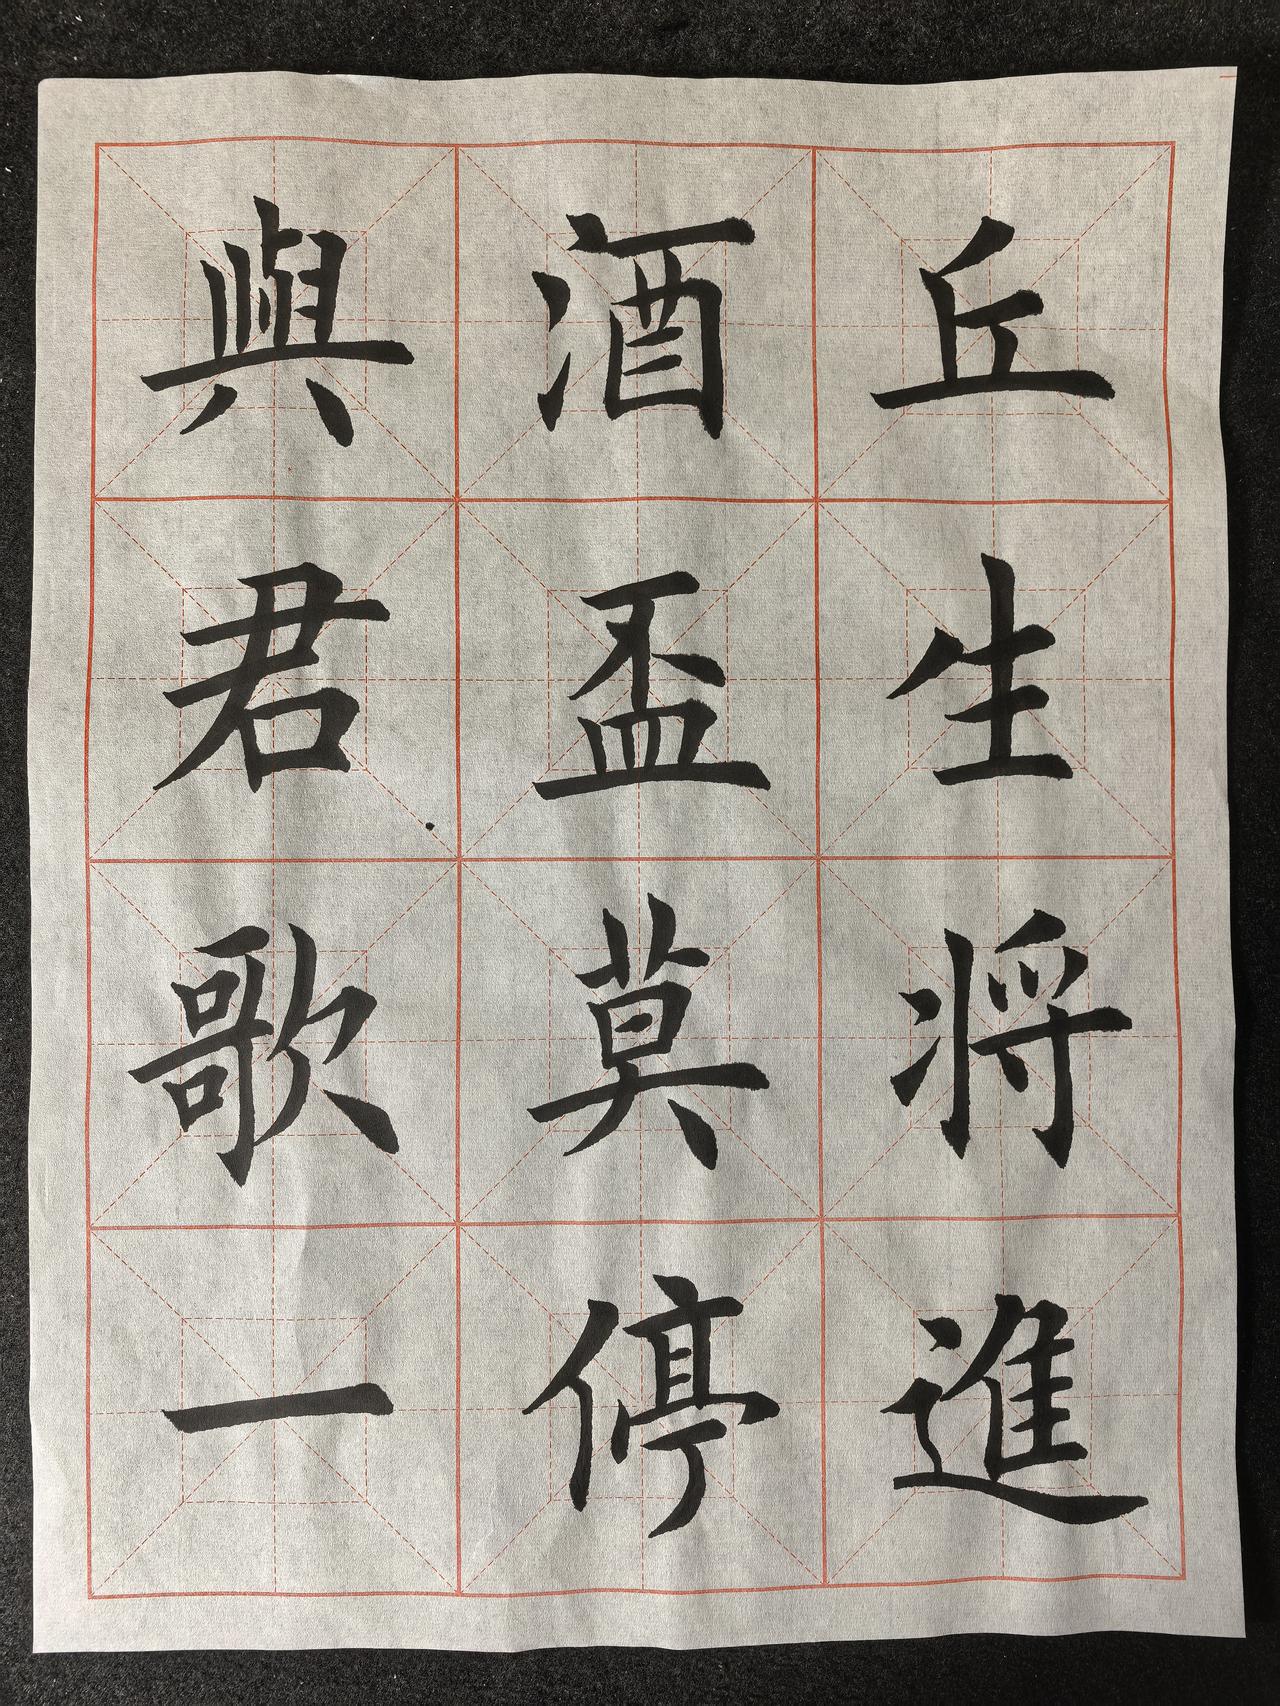 丘生将進
酒盃莫停
與君歌一